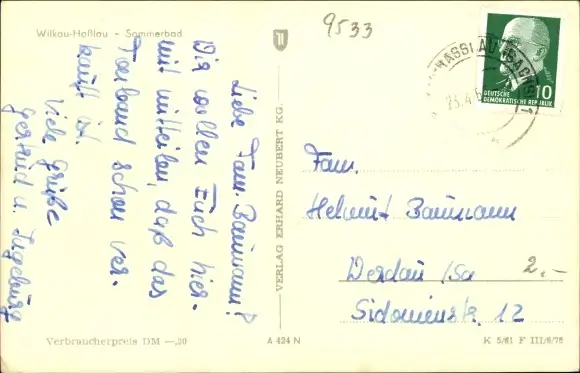 Wilkau-Haßlau - Sommerbad
9533
Liebe Fam. Baumann!
Wir wollen Euch hier-
mit mitteilen, daß das
Tonband schon ver-
kauft ist.
Viele Grüße
Gertrud u. Ingeburg
VERLAG ERHARD NEUBERT KG.
HASSLAU (SACHS)
23.4.6
DEUTSCHE
DEMOKRATISCHE REPUBLIK
10
Fam.
Helmut Baumann
Werdau/Sa
2.-
Sidonienstr. 12
Verbraucherpreis DM —,20
A 424 N
K 5/61 F III/6/76